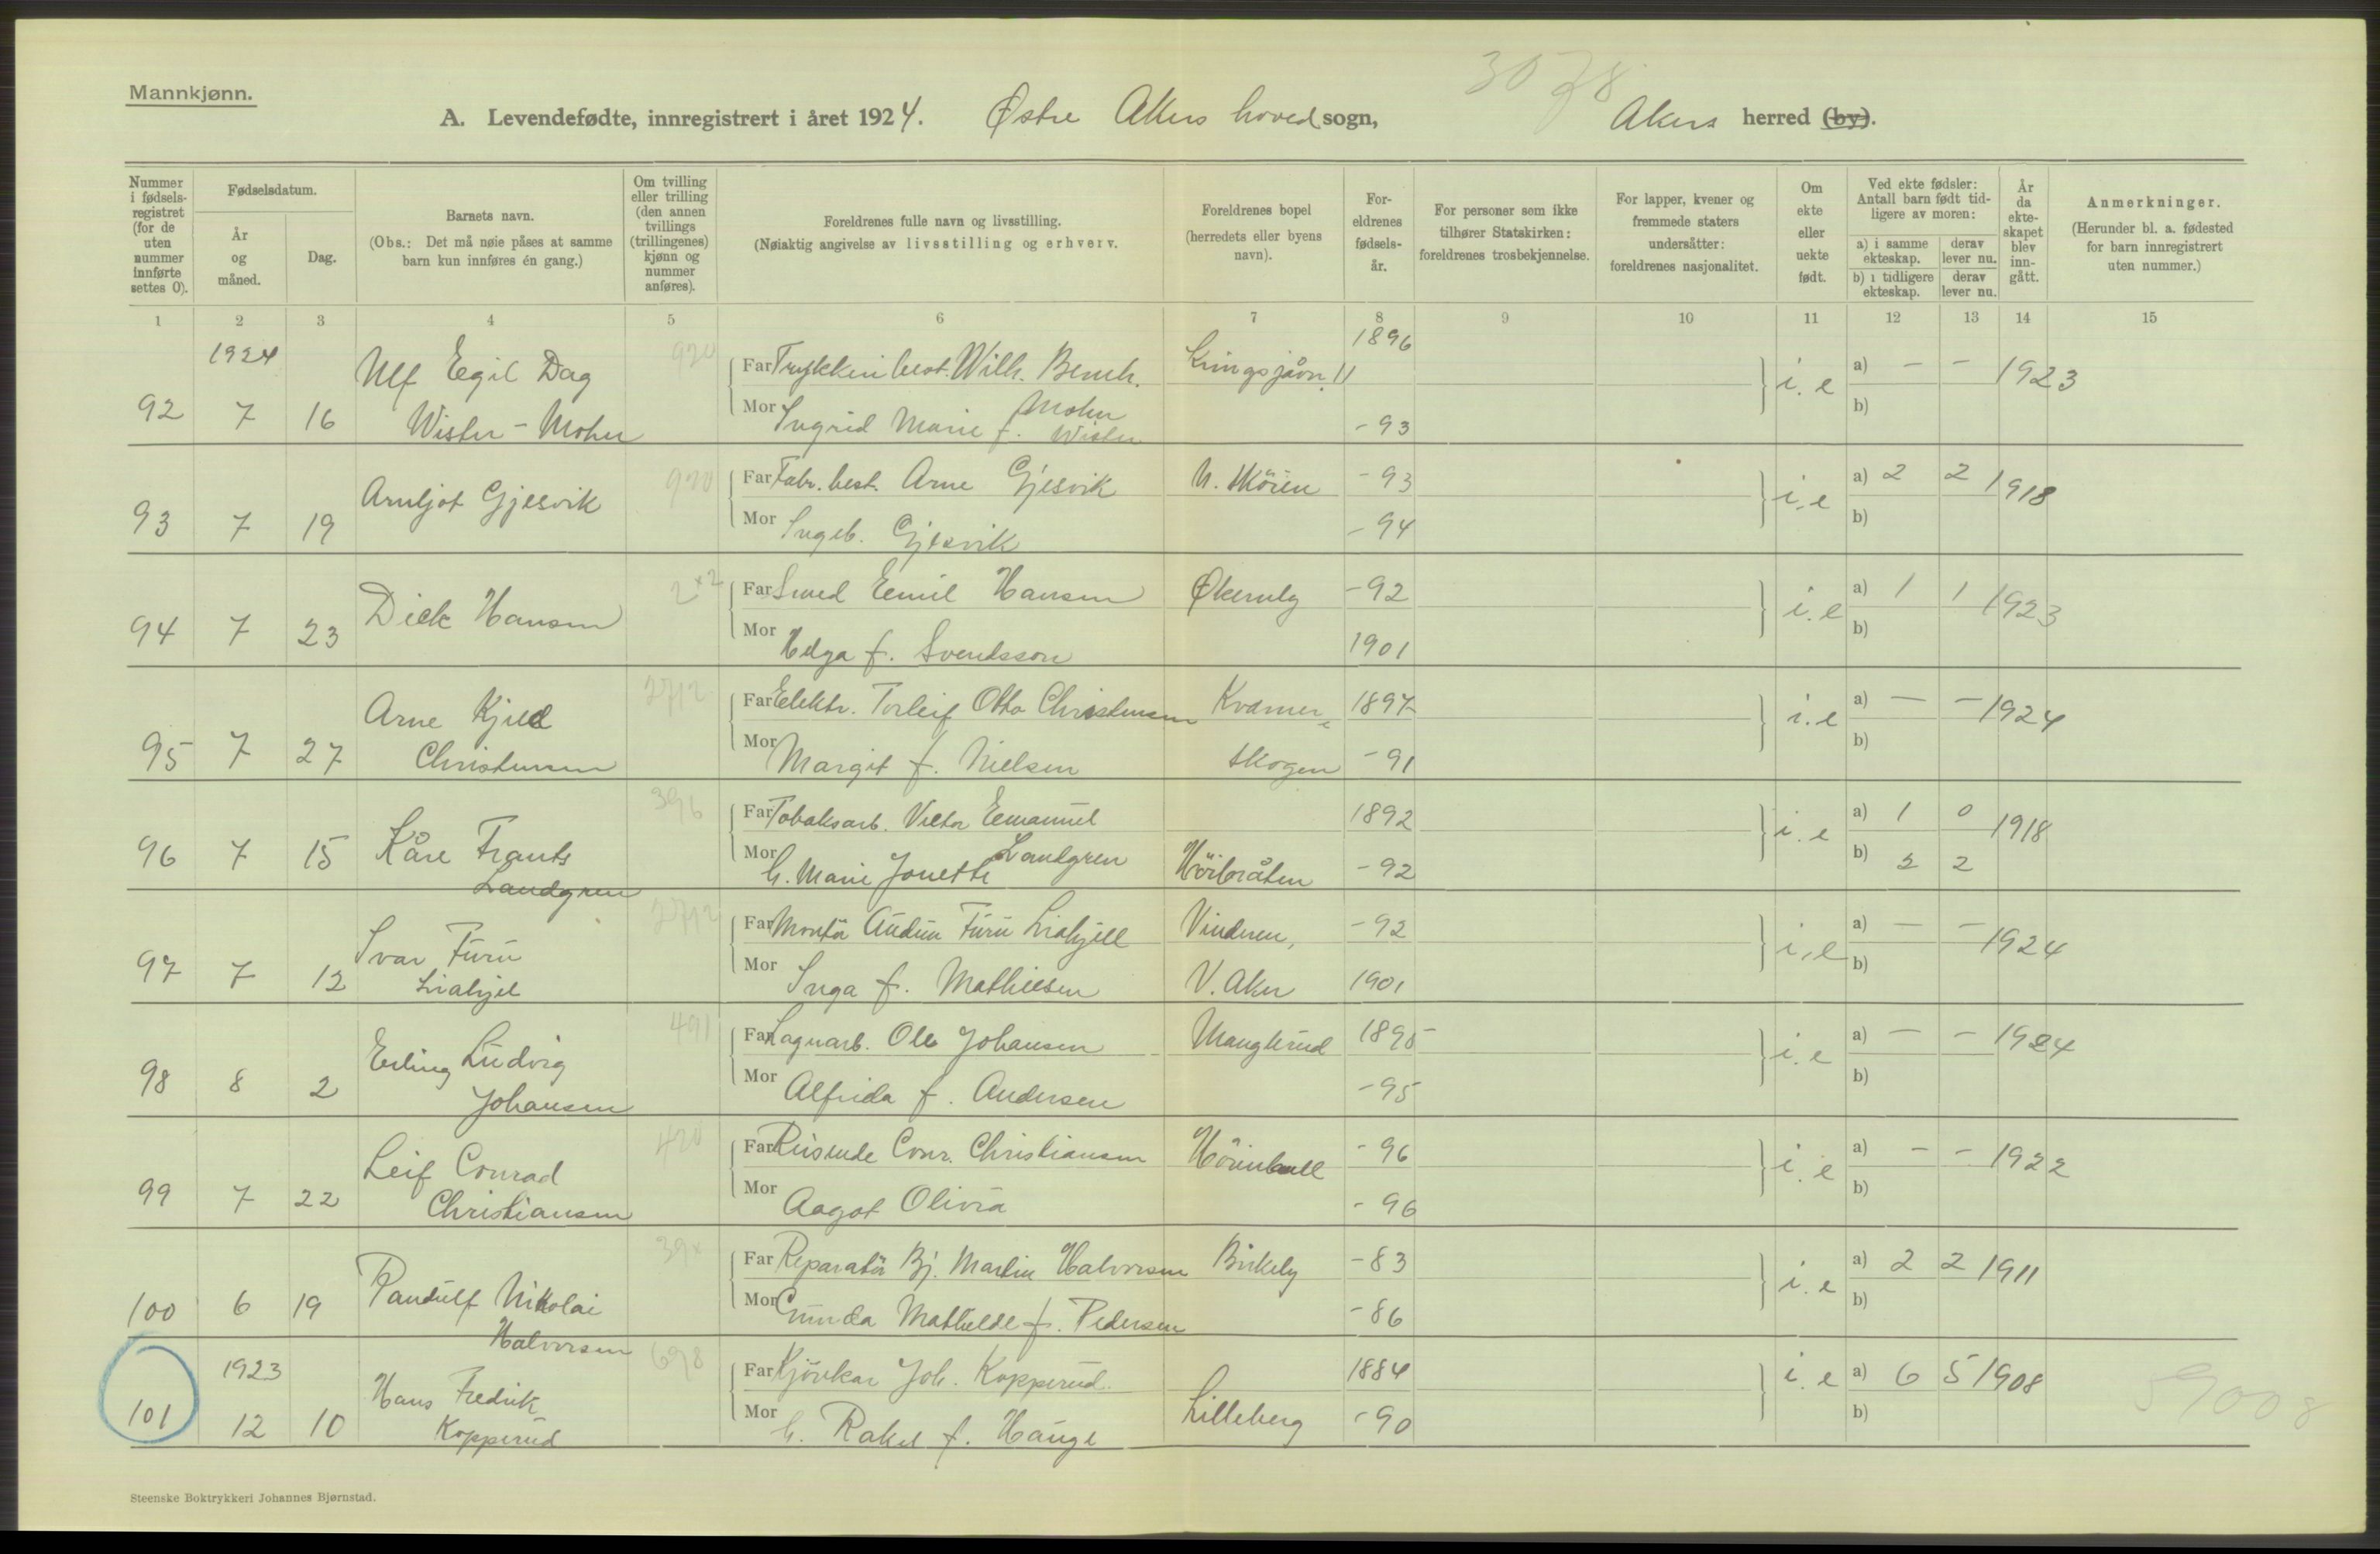 3078
Mannkjønn.
A. Levendefødte, innregistrert i året 1924. Østre Akers hoved sogn, Akers herred (by).
Nummer i fødselsregistret (for de uten nummer innførte settes 0).
Fødselsdatum.
År og måned.
Dag.
Barnets navn.
(Obs.: Det må nøie påses at samme barn kun innføres én gang.)
Om tvilling eller trilling (den annen tvillings (trillingenes) kjønn og nummer anføres).
Foreldrenes fulle navn og livsstilling.
(Nøiaktig angivelse av livsstilling og erhverv.
Foreldrenes bopel (herredets eller byens navn).
Foreldrenes fødselsår.
For personer som ikke tilhører Statskirken: foreldrenes trosbekjennelse.
For lapper, kvener og fremmede staters undersåtter: foreldrenes nasjonalitet.
Om ekte eller uekte født.
Ved ekte fødsler: Antall barn født tidligere av moren:
a) i samme ekteskap. derav lever nu.
b) i tidligere ekteskap. derav lever nu.
År da ekteskapet blev inngått.
Anmerkninger.
(Herunder bl. a. fødested for barn innregistrert uten nummer.)
1 2 3 4 5 6 7 8 9 10 11 12 13 14 15
1924 Ulf Egil Dag 920 Far Wilh. 1896 i. e a) - - 1923
92 7 16 Wister-Mohr Mohr
Mor Ingrid Marie f. Wister -93 b)
Arnljot Gjesvik 920 Far Fabr. best. Arne Gjesvik N. Skøien -93 i. e a) 2 2 1918
93 7 19 Mor Ingeb. Gjesvik -94 b)
Dick Hansen 2x2 Far Smed Emil Hansen Økernly -92 i. e a) 1 1 1923
94 7 23 Mor Helga f. Svendsson 1901 b)
Arne Kjell 2712 Far Elektr. Torleif Otto Christensen Kværner 1897 i. e a) - - 1924
95 7 27 Christensen Mor Margit f. Nielsen skogen -91 b)
396 Far Tobaksarb. Victor Emanuel 1892 i. e a) 1 0 1918
96 7 15 Kåre Frants Landgren
Landgren Mor h. Marie Jonette Høibråten -92 b) 2 2
Ivar Furu 2712 Far Montør Audun Furu Liahjell Vinderen, -92 i. e a) - - 1924
97 7 12 Liahjel Mor Inga f. Mathiesen V. Aker 1901 b)
Erling Ludvig 491 Far Lagerarb. Ole Johansen Manglerud 1895 i. e a) - - 1924
98 8 2 Johansen Mor Alfrida f. Andersen -95 b)
Leif Conrad 420 Far Reisende Conr. Christiansen -96 i. e a) - - 1922
99 7 22 Christiansen Mor Aagot Olivia -96 b)
Randulf Nikolai Far Reparatør Bj. Martin Halvorsen Birkely -83 i. e a) 2 2 1911
100 6 19 Halvorsen Mor Gunda Mathilde f. Pedersen -86 b)
1923 Hans Fredrik 698 Far Kjørekar Joh. Kopperud 1884 i. e a) 6 5 1908
101 12 10 Kopperud Mor h. Rakel f. Hauge Lilleberg -90 b) 59008
Steenske Boktrykkeri Johannes Bjørnstad.